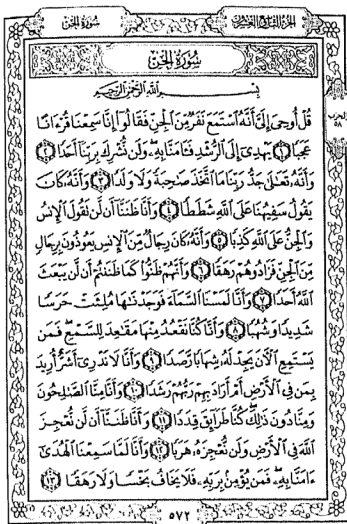 سُورَةُ الجِنّ
الجُزْءُ التَّاسِعُ وَالعِشْرُونَ
الحزب
٥٨
سُورَةُ الجِنّ
بِسْمِ اللَّهِ الرَّحْمَٰنِ الرَّحِيمِ
قُلْ أُوحِىَ إِلَىَّ أَنَّهُ ٱسْتَمَعَ نَفَرٌ مِّنَ ٱلْجِنِّ فَقَالُوٓا۟ إِنَّا سَمِعْنَا قُرْءَانًا
عَجَبًا ١ يَهْدِىٓ إِلَى ٱلرُّشْدِ فَـَٔامَنَّا بِهِۦ وَلَن نُّشْرِكَ بِرَبِّنَآ أَحَدًا ٢
وَأَنَّهُۥ تَعَٰلَىٰ جَدُّ رَبِّنَا مَا ٱتَّخَذَ صَٰحِبَةً وَلَا وَلَدًا ٣ وَأَنَّهُۥ كَانَ
يَقُولُ سَفِيهُنَا عَلَى ٱللَّهِ شَطَطًا ٤ وَأَنَّا ظَنَنَّآ أَن لَّن تَقُولَ ٱلْإِنسُ
وَٱلْجِنُّ عَلَى ٱللَّهِ كَذِبًا ٥ وَأَنَّهُۥ كَانَ رِجَالٌ مِّنَ ٱلْإِنسِ يَعُوذُونَ بِرِجَالٍ
مِّنَ ٱلْجِنِّ فَزَادُوهُمْ رَهَقًا ٦ وَأَنَّهُمْ ظَنُّوا۟ كَمَا ظَنَنتُمْ أَن لَّن يَبْعَثَ
ٱللَّهُ أَحَدًا ٧ وَأَنَّا لَمَسْنَا ٱلسَّمَآءَ فَوَجَدْنَٰهَا مُلِئَتْ حَرَسًا
شَدِيدًا وَشُهُبًا ٨ وَأَنَّا كُنَّا نَقْعُدُ مِنْهَا مَقَٰعِدَ لِلسَّمْعِ فَمَن
يَسْتَمِعِ ٱلْـَٔانَ يَجِدْ لَهُۥ شِهَابًا رَّصَدًا ٩ وَأَنَّا لَا نَدْرِىٓ أَشَرٌّ أُرِيدَ
بِمَن فِى ٱلْأَرْضِ أَمْ أَرَادَ بِهِمْ رَبُّهُمْ رَشَدًا ١٠ وَأَنَّا مِنَّا ٱلصَّٰلِحُونَ
وَمِنَّا دُونَ ذَٰلِكَ كُنَّا طَرَآئِقَ قِدَدًا ١١ وَأَنَّا ظَنَنَّآ أَن لَّن نُّعْجِزَ
ٱللَّهَ فِى ٱلْأَرْضِ وَلَن نُّعْجِزَهُۥ هَرَبًا ١٢ وَأَنَّا لَمَّا سَمِعْنَا ٱلْهُدَىٰٓ
ءَامَنَّا بِهِۦ فَمَن يُؤْمِنۢ بِرَبِّهِۦ فَلَا يَخَافُ بَخْسًا وَلَا رَهَقًا ١٣
٥٧٢